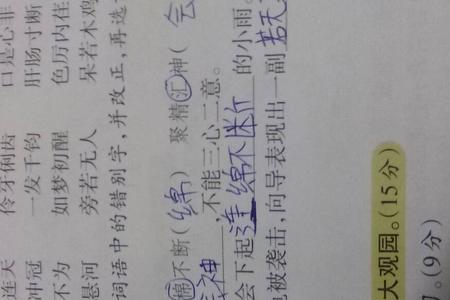 连天 伶牙俐齿 口是心非
冲冠 一发千钧 肝肠寸断
不为 如梦初醒 色厉内荏
悬河 旁若无人 呆若木鸡
词语中的错别字,并改正,再选
棉不断(绵) 聚精汇神(会
神 不能三心二意。
会下起连绵不断的小雨。
被袭击,向导表现出一副若
大观园。(15分)
。(9分)